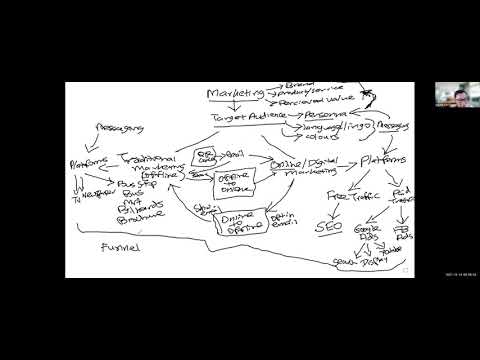 Brand
Marketing → product/service
Percieved value
Target Audience → Persona
language/lingo
colours
Messaging
Messaging
Platforms
Traditional
Marketing
(Offline)
QR
code
email
Offline
to
Online
Online/Digital
Marketing
Platforms
TV
Newspaper
Bus Stop
Bus
MRT
Billboards
Brochure
Online
to
Offline
Opt in
email
Free Traffic
Paid
Traffic
SEO
Google
Ads
FB
Ads
Search
Display
Youtube
Funnel